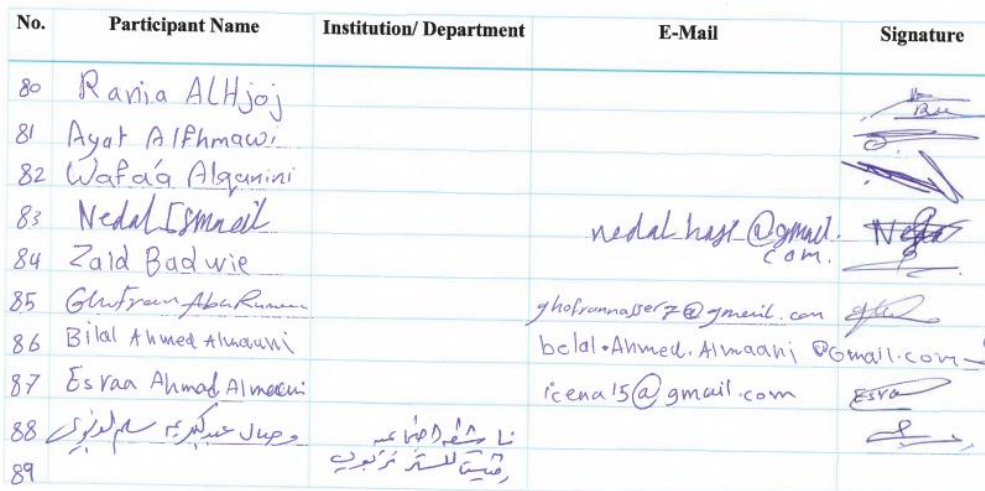 No. Participant Name Institution/ Department E-Mail Signature
80 Rania ALHjoj
81 Ayat Alfhmawi
82 Wafa'a Alqunini
83 Nedal Ismaeil nedal_hass_@gmail.com.
84 Zaid Badwie
85 Ghufran AbuRumman ghofrannasser7@gmail.com
86 Bilal Ahmed Almaani belal.Ahmed.Almaani@Gmail.com
87 Esraa Ahmad Almaani icena15@gmail.com Esra
88 وصال عبدالكريم سالم ناشطة اجتماعية
89